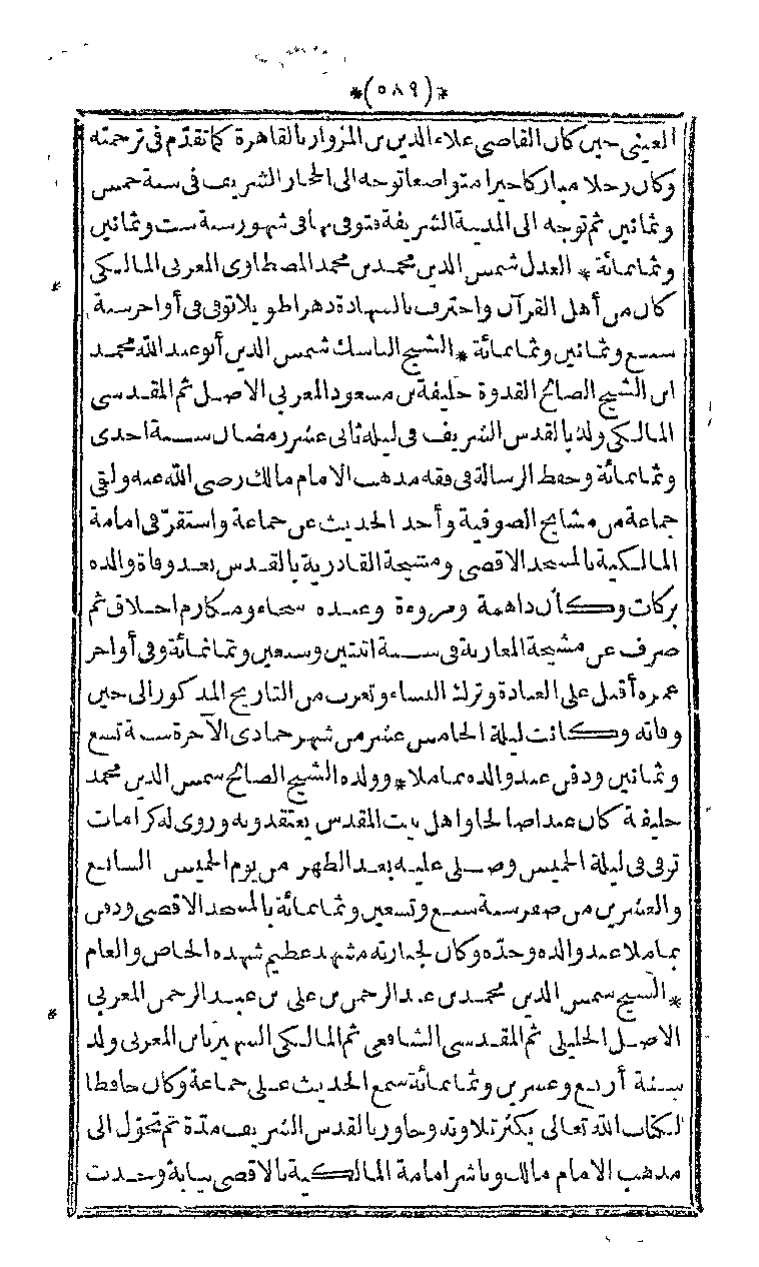 *(٥٨٩)*
العينى حين كان القاضى علاء الدين بن المزوار بالقاهرة كما تقدّم فى ترجمته
وكان رجلا مباركا خيرا متواضعا توجه الى الحجاز الشريف فى سنة خمس
وثمانين ثم توجه الى المدينة الشريفة فتوفى بها فى شهور سنة ست وثمانين
وثمانمائة * العدل شمس الدين محمد بن محمد المصطاوى المغربى المالكى
كان من أهل القرآن واحترف بالشهادة دهرا طويلا توفى فى أواخر سنة
سبع وثمانين وثمانمائة * الشيخ الناسك شمس الدين أبو عبد الله محمد
ابن الشيخ الصالح القدوة خليفة بن مسعود المغربى الاصل ثم المقدسى
المالكى ولد بالقدس الشريف فى ليلة ثانى عشر رمضان سنة احدى
وثمانمائة وحفظ الرسالة فى فقه مذهب الامام مالك رضى الله عنه ولقى
جماعة من مشايخ الصوفية وأخذ الحديث عن جماعة واستقرّ فى امامة
المالكية بالمسجد الاقصى ومشيخة القادرية بالقدس بعد وفاة والده
بركات وكان ذا همة ومروءة وعنده سخاء ومكارم اخلاق ثم
صرف عن مشيخة المغاربة فى سنة اثنتين وسبعين وثمانمائة وفى أواخر
عمره أقبل على العبادة وترك النساء وتعرب من التاريخ المذكور الى حين
وفاته وكانت ليلة الخامس عشر من شهر جمادى الآخرة سنة تسع
وثمانين ودفن عند والده بماملا * وولده الشيخ الصالح شمس الدين محمد
خليفة كان عبدا صالحا واهل بيت المقدس يعتقدونه وروى له كرامات
توفى فى ليلة الخميس وصلى عليه بعد الظهر من يوم الخميس السابع
والعشرين من صفر سنة سبع وتسعين وثمانمائة بالمسجد الاقصى ودفن
بماملا عند والده وجدّه وكان لجنازته مشهد عظيم شهده الخاص والعام
* الشيخ شمس الدين محمد بن عبد الرحمن بن على بن عبد الرحمن المغربى
الاصل الخليلى ثم المقدسى الشافعى ثم المالكى الشهير بابن المغربى ولد
سنة أربع وعشرين وثمانمائة سمع الحديث على جماعة وكان حافظا
لكتاب الله تعالى يكثر تلاوته وجاور بالقدس الشريف مدّة ثم تحوّل الى
مذهب الامام مالك وباشر امامة المالكية بالاقصى نيابة وحدث